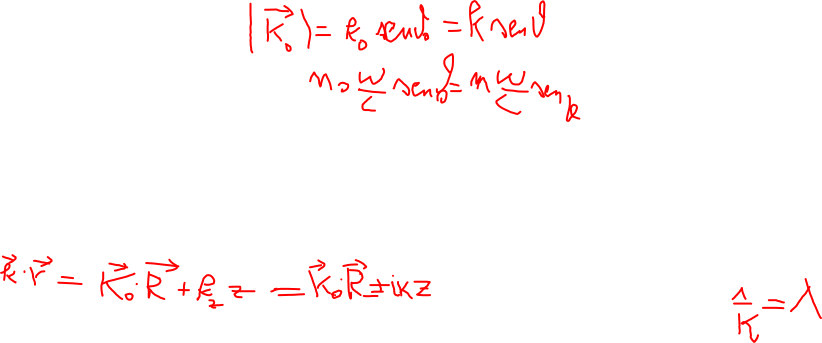 |K⃗₀| = k₀ senϑ₀ = k senϑ
n₀ ω/c senϑ₀ = n ω/c sen
k⃗·r⃗ = K⃗₀·R⃗ + k_z z = K⃗₀·R⃗ ± iκz
1/κ = λ